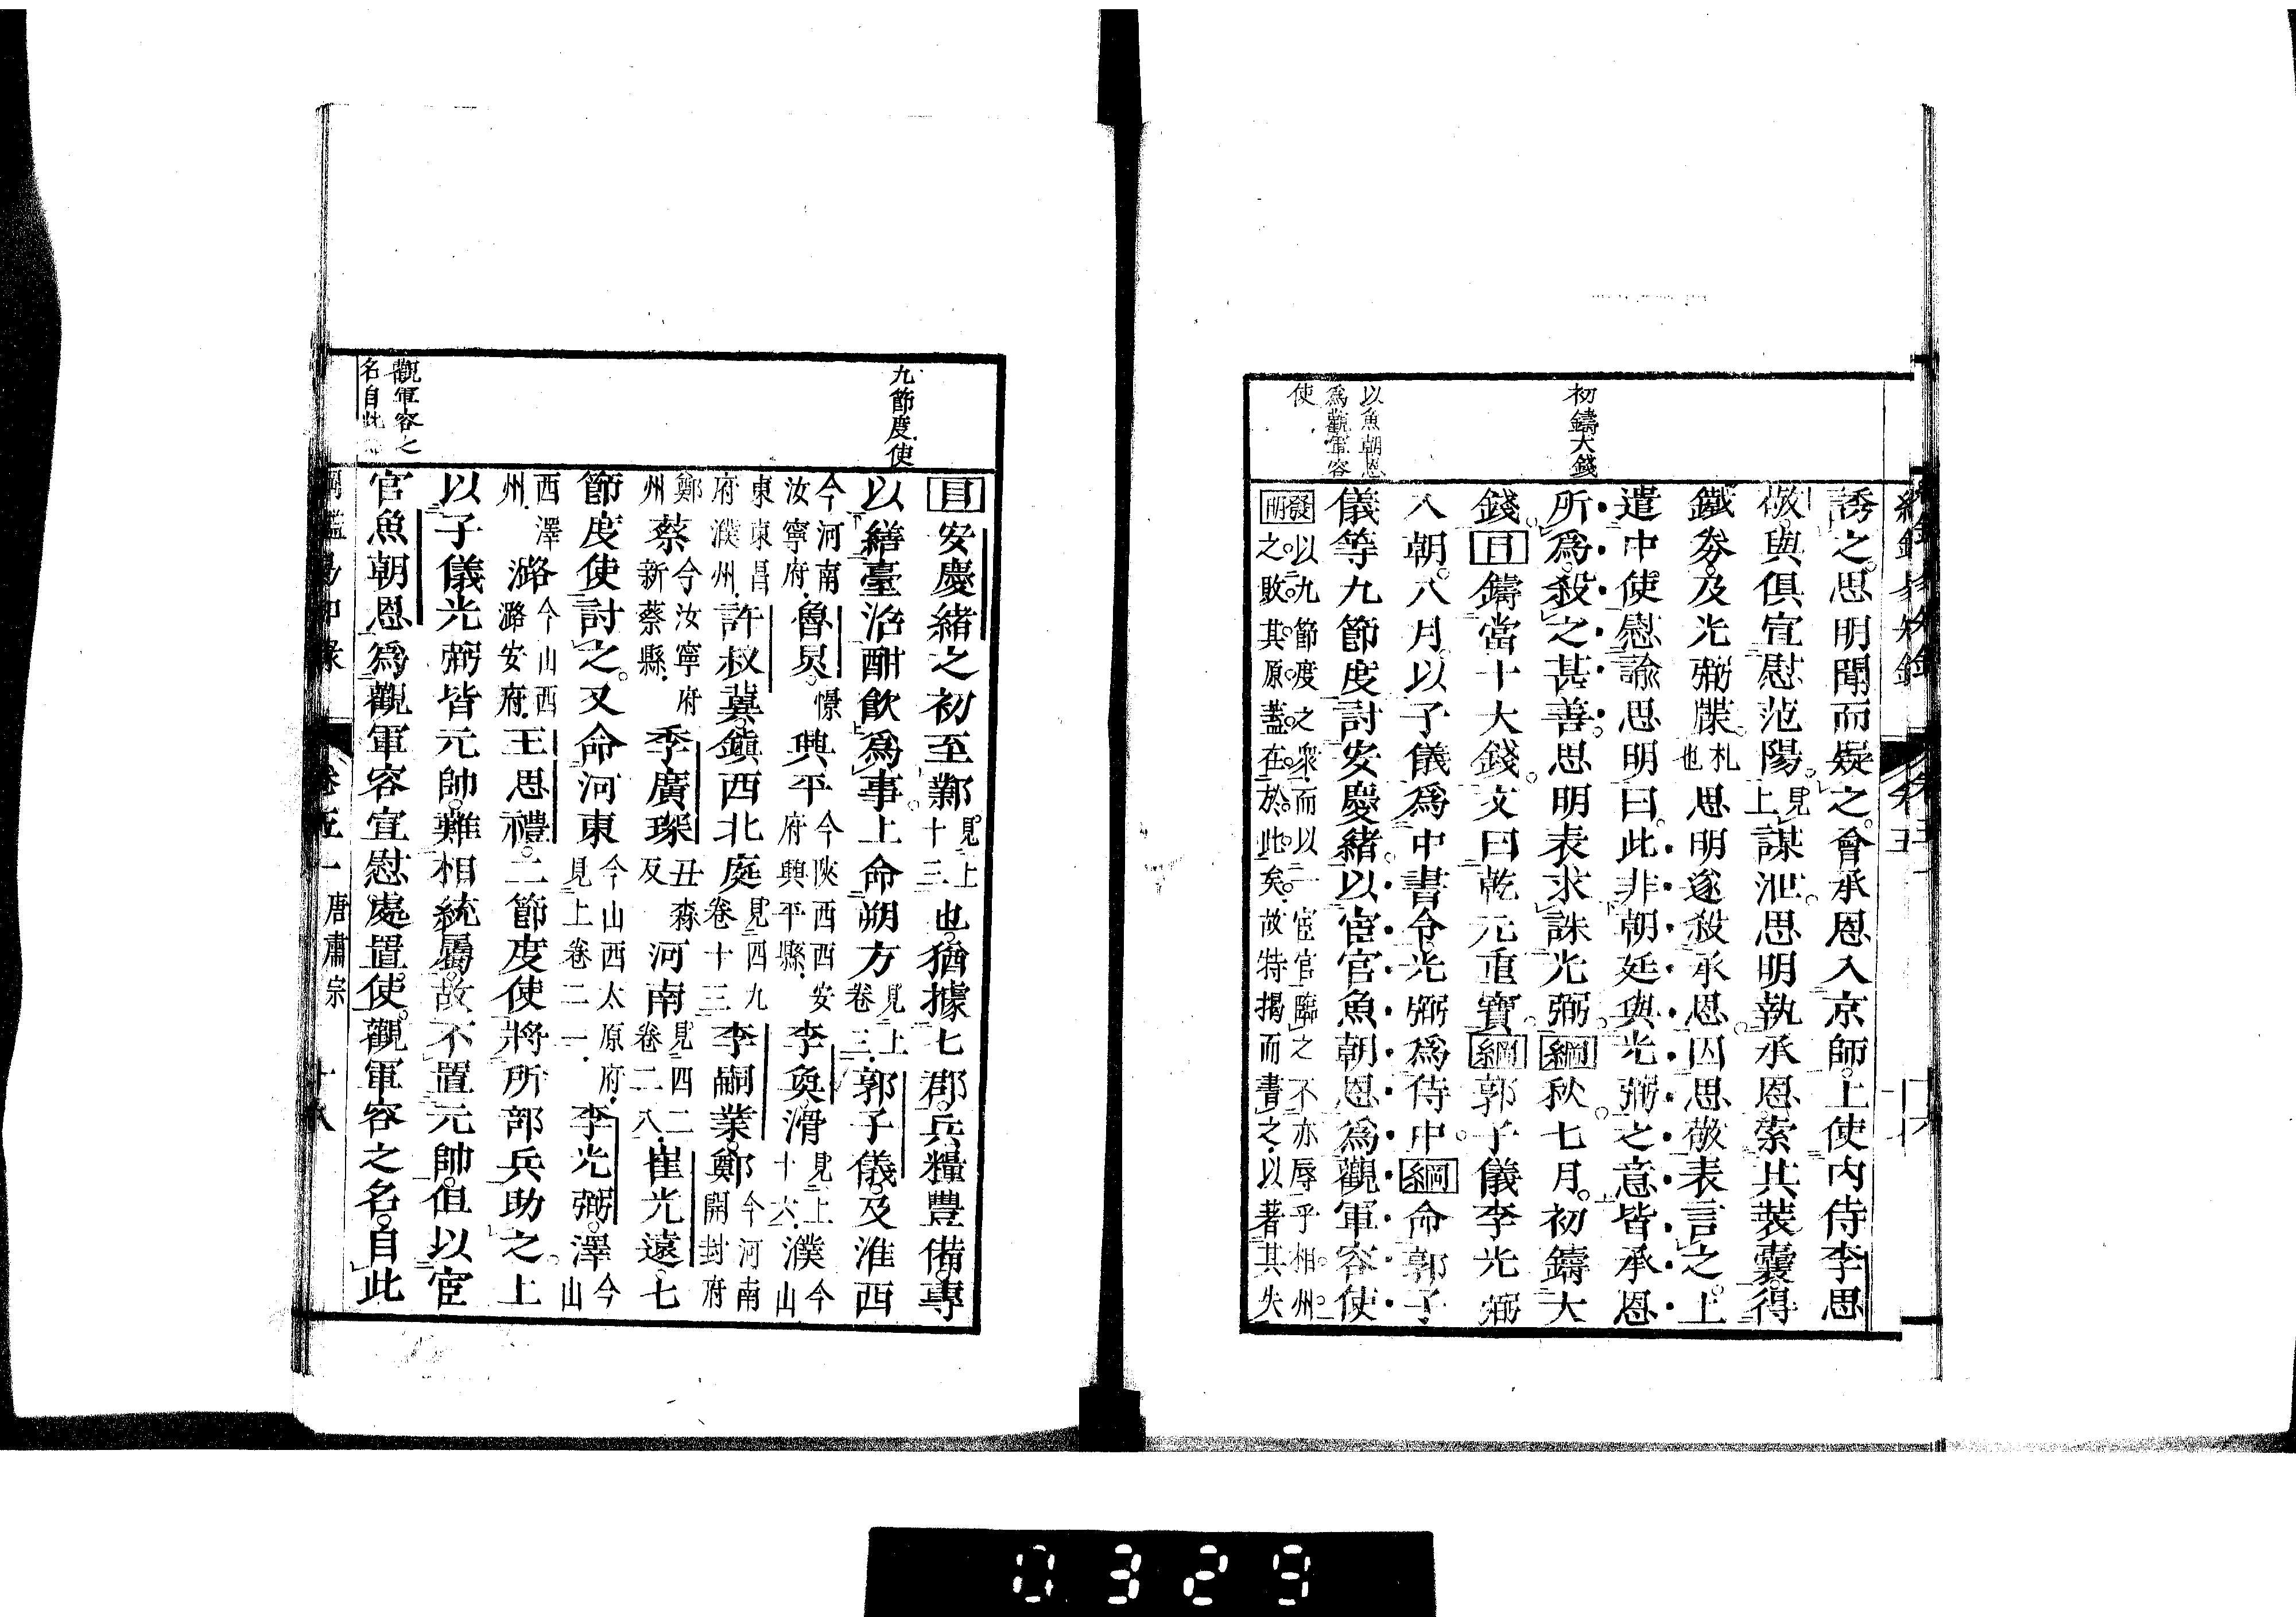 初鑄大錢
以魚朝恩
爲觀軍容
使
誘之。思明聞而疑之。會承恩入京師。上使內侍李思
敬與俱宣慰范陽。見上謀泄。思明執承恩索其裝囊。得
鐵券。及光弼牒。札也思明遂殺承恩。囚思敬。表言之。上
遣中使慰諭思明曰。此非朝廷與光弼之意。皆承恩
所爲。殺之甚善。思明表求誅光弼。綱秋。七月。初鑄大
錢。目鑄當十大錢。文曰乾元重寶。綱郭子儀李光弼
入朝。八月。以子儀爲中書令。光弼爲侍中。綱命郭子
儀等九節度討安慶緒。以宦官魚朝恩爲觀軍容使
發明以九節度之衆。而以一宦官臨之。不亦辱乎。相州
之敗。其原蓋在於此矣。故特揭而書之。以著其失
九節度使
觀軍容之
名自此
目安慶緒之初至鄴見上十三也。猶據七郡。兵糧豐備。專
以繕臺沼酣飮爲事。上命朔方見上卷三。郭子儀。及淮西
今河南汝寧府。魯炅。憬興平今陝西西安府興平縣。李奐。滑見上十六。濮今山
東東昌府濮州。許叔冀。鎭西北庭見四九卷十三李嗣業。鄭今河南開封府
鄭州蔡今汝寧府新蔡縣。季廣琛丑森反河南見四二卷二八。崔光遠。七
節度使討之。又命河東今山西太原府。見上卷二一。李光弼。澤今山
西澤州。潞今山西潞安府。王思禮。二節度使將所部兵助之。上
以子儀光弼皆元帥。難相統屬。故不置元帥。但以宦
官魚朝恩爲觀軍容宣慰處置使。觀軍容之名。自此
唐肅宗